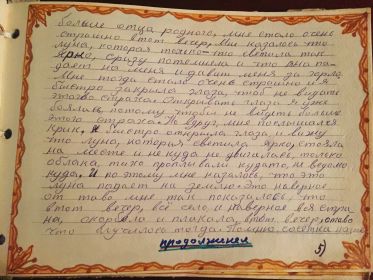 больше отца родного, мне стало очень
страшно в тот вечер, мне казалось что
луна, которая только-что светила так
ярко, сразу потемнела и что она па-
дает на меня и давит меня за горло
мне тогда стало очень страшно и я
быстро закрыла глаза, чтоб не видать
этого страха. Открывать глаза я уже
боялась, потому чтобы не видеть больше
этого страха. Но вдруг мне послышался
крик, я быстро открыла глаза и вижу
что луна, которая светила ярко, стояла
на месте и не куда не двигалась, только
облака тихо проплывали кудато, не ведомо
куда. И по этому мне казалось, что это
луна падает на землю. Это наверное
от таво мне так показалось, что
в тот вечер, всё село и наверное вся стра-
на, скорбела и плакала в тот вечер, отаво
что случилось тогда. Помню соседка наша
продолжения
5)